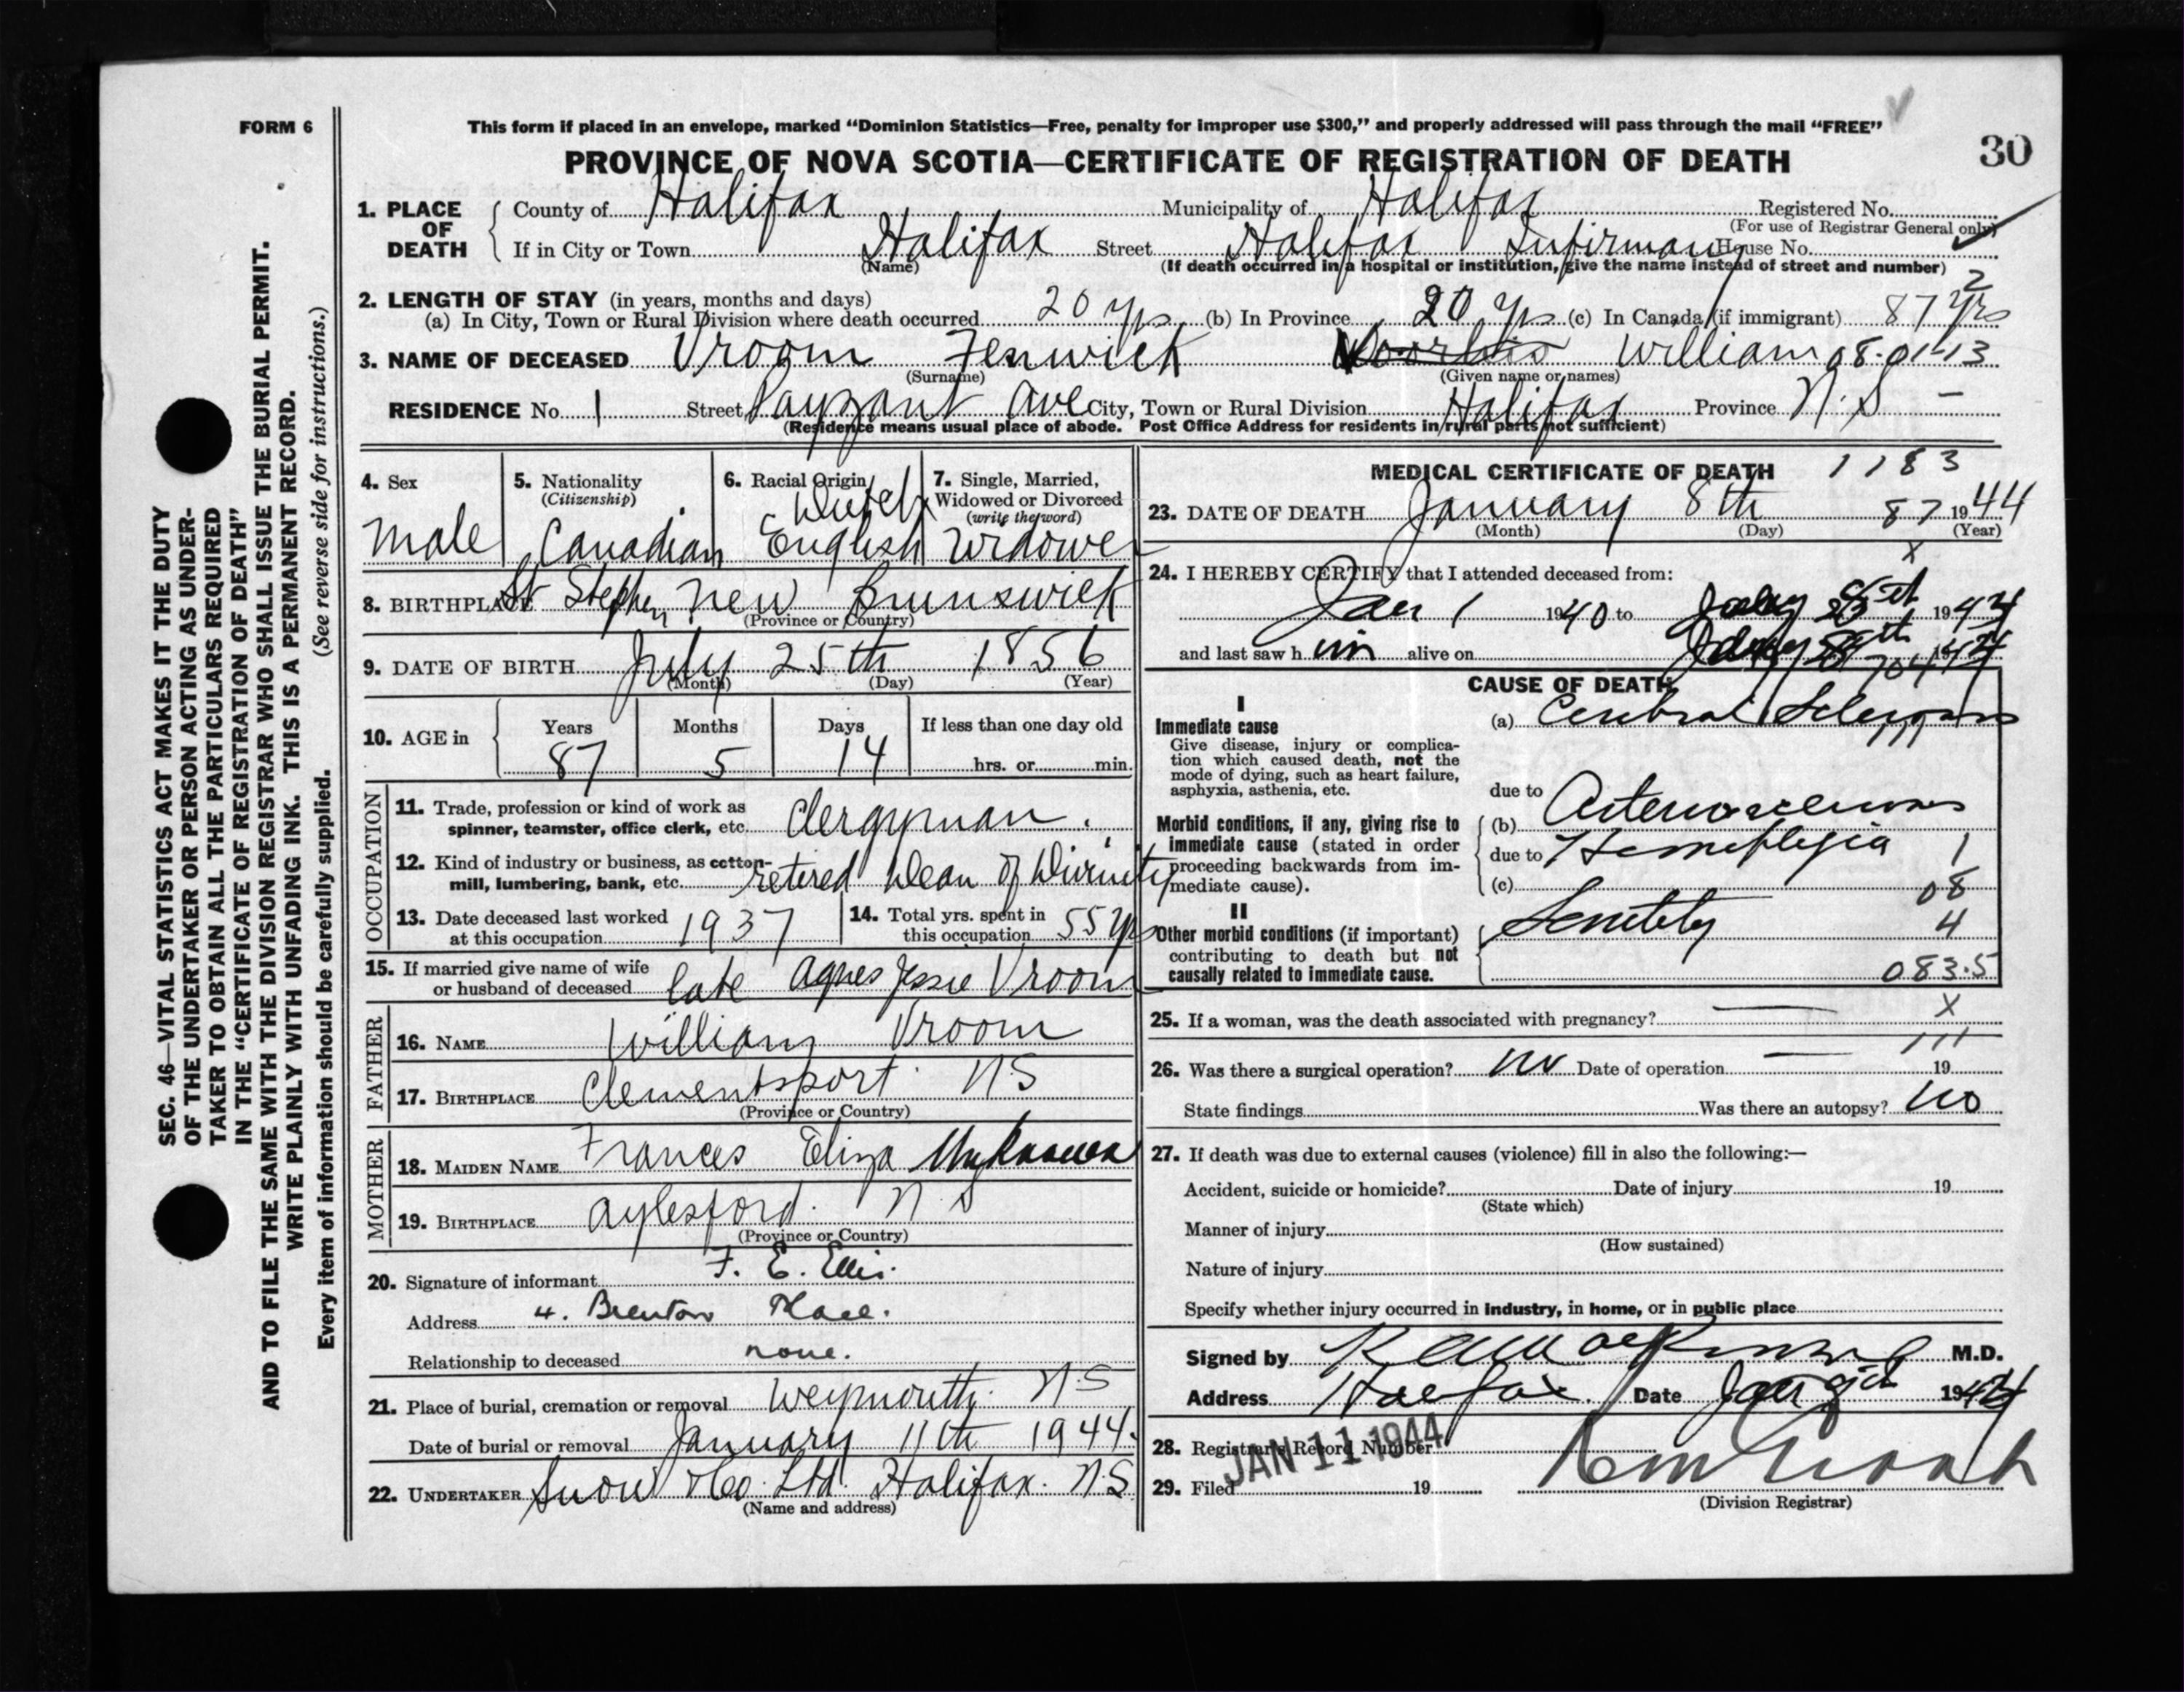 FORM 6
This form if placed in an envelope, marked “Dominion Statistics—Free, penalty for improper use $300,” and properly addressed will pass through the mail “FREE”
PROVINCE OF NOVA SCOTIA—CERTIFICATE OF REGISTRATION OF DEATH
30
1. PLACE OF DEATH
County of Halifax Municipality of Halifax Registered No.
(For use of Registrar General only)
If in City or Town Halifax Street Halifax Infirmary House No.
(Name) (If death occurred in a hospital or institution, give the name instead of street and number)
2. LENGTH OF STAY (in years, months and days)
(a) In City, Town or Rural Division where death occurred 20 yrs (b) In Province 20 yrs (c) In Canada (if immigrant) 87 yrs
2
3. NAME OF DECEASED Vroom Fenwick William 08-01-13
(Surname) (Given name or names)
RESIDENCE No. 1 Street Payzant Ave City, Town or Rural Division Halifax Province N.S —
(Residence means usual place of abode. Post Office Address for residents in rural parts not sufficient)
4. Sex
male
5. Nationality
(Citizenship)
Canadian
6. Racial Origin
Dutch
English
7. Single, Married, Widowed or Divorced
(write the word)
Widower
8. BIRTHPLACE St Stephen New Brunswick
(Province or Country)
9. DATE OF BIRTH July 25th 1856
(Month) (Day) (Year)
10. AGE in
Years Months Days If less than one day old
87 5 14 hrs. or min.
OCCUPATION
11. Trade, profession or kind of work as
spinner, teamster, office clerk, etc. Clergyman.
12. Kind of industry or business, as cotton-
mill, lumbering, bank, etc. retired Dean of Divinity
13. Date deceased last worked
at this occupation 1937
14. Total yrs. spent in
this occupation 55 yrs
15. If married give name of wife
or husband of deceased late Agnes Jessie Vroom
FATHER
16. NAME William Vroom
17. BIRTHPLACE Clementsport. NS
(Province or Country)
MOTHER
18. MAIDEN NAME Frances Eliza Unknown
19. BIRTHPLACE Aylesford. N S
(Province or Country)
20. Signature of informant F. E. Ellis.
Address 4. Brenton Place.
Relationship to deceased none.
21. Place of burial, cremation or removal Weymouth. NS
Date of burial or removal January 11th 1944.
22. UNDERTAKER Snow & Co. Ltd. Halifax. N.S.
(Name and address)
MEDICAL CERTIFICATE OF DEATH 1183
23. DATE OF DEATH January 8th 87 1944
(Month) (Day) (Year)
x
24. I HEREBY CERTIFY that I attended deceased from:
Jan 1 1940 to 1944
and last saw h im alive on
CAUSE OF DEATH
I
Immediate cause
Give disease, injury or complica-
tion which caused death, not the
mode of dying, such as heart failure,
asphyxia, asthenia, etc.
(a) Cerebral Sclerosis
111
due to
Morbid conditions, if any, giving rise to
immediate cause (stated in order
proceeding backwards from im-
mediate cause).
(b) Arteriosclerosis
due to Hemiplegia 1
(c) 08
II
Other morbid conditions (if important)
contributing to death but not
causally related to immediate cause.
Senility 4
083.5
25. If a woman, was the death associated with pregnancy? — X
111
26. Was there a surgical operation? no Date of operation — 19
State findings Was there an autopsy? no
27. If death was due to external causes (violence) fill in also the following:—
Accident, suicide or homicide? Date of injury 19
(State which)
Manner of injury
(How sustained)
Nature of injury
Specify whether injury occurred in industry, in home, or in public place
Signed by M.D.
Address Halifax. Date 1944
28. Registrar's Record Number
JAN 11 1944
29. Filed 19
(Division Registrar)
SEC. 46—VITAL STATISTICS ACT MAKES IT THE DUTY
OF THE UNDERTAKER OR PERSON ACTING AS UNDER-
TAKER TO OBTAIN ALL THE PARTICULARS REQUIRED
IN THE “CERTIFICATE OF REGISTRATION OF DEATH”
AND TO FILE THE SAME WITH THE DIVISION REGISTRAR WHO SHALL ISSUE THE BURIAL PERMIT.
WRITE PLAINLY WITH UNFADING INK. THIS IS A PERMANENT RECORD.
Every item of information should be carefully supplied. (See reverse side for instructions.)